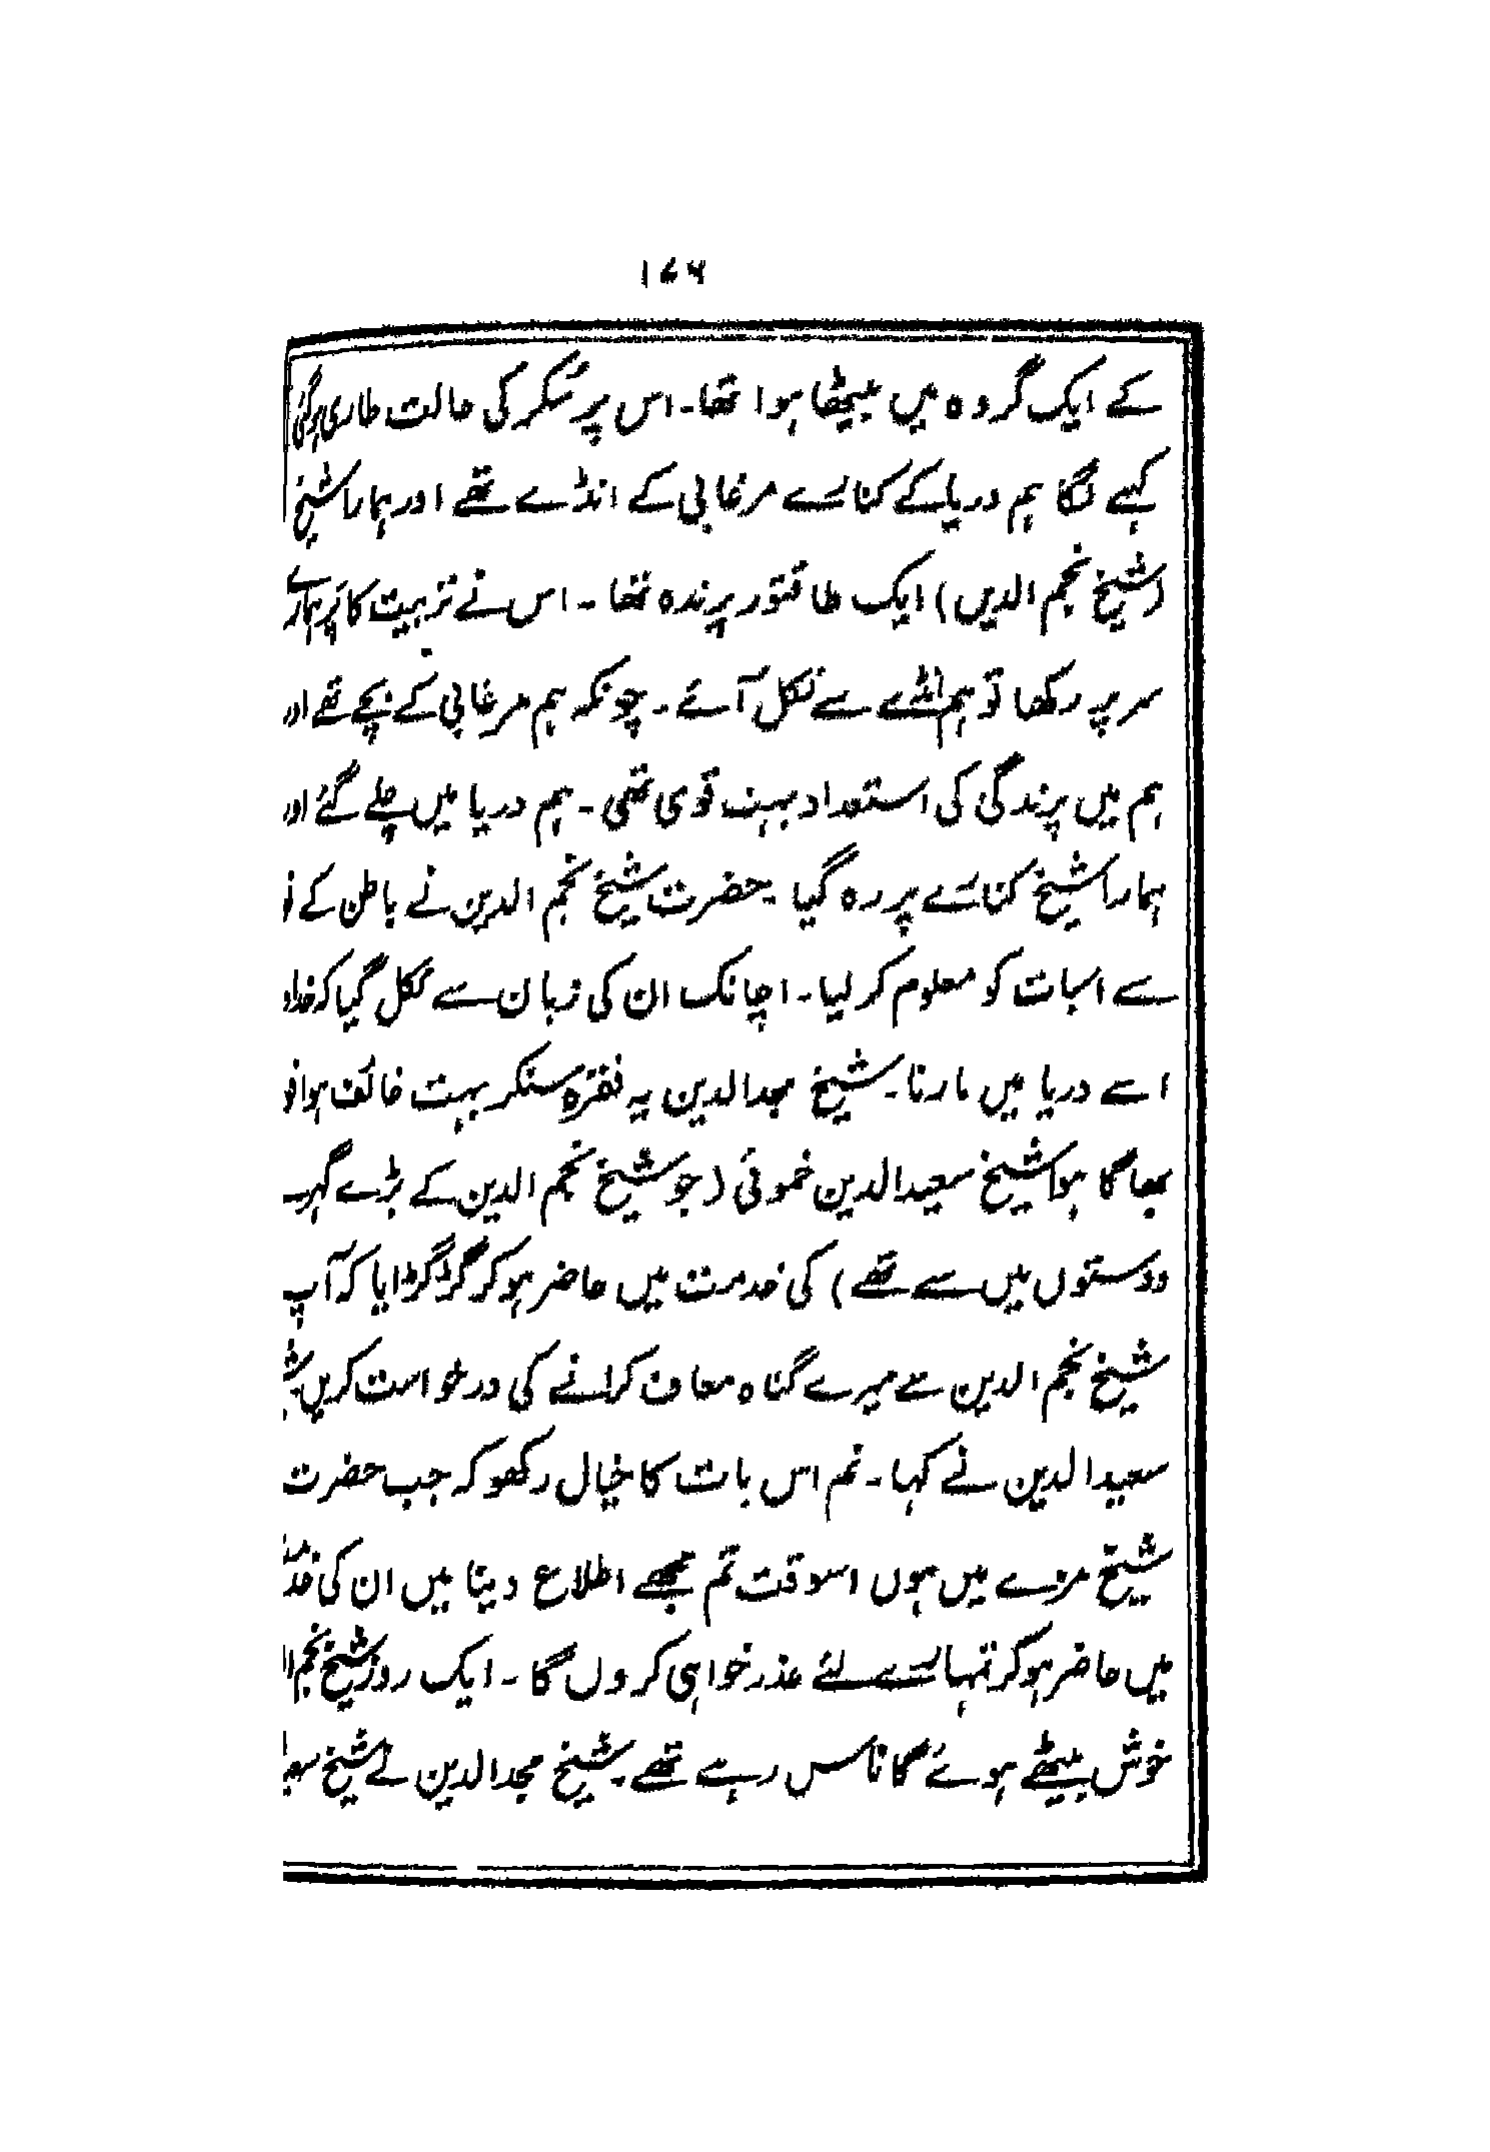 ۱۷۶
کے ایک گروہ میں بیٹھا ہوا تھا۔ اس پر سُکر کی حالت طاری ہوگئی
کہنے لگا ہم دریا کے کنارے مرغابی کے انڈے تھے اور ہمارا شیخ
(شیخ نجم الدین) ایک طاقتور پرندہ تھا ۔ اس نے تربیت کا پَر ہمارے
سر پہ رکھا تو ہم انڈے سے نکل آئے ۔ چونکہ ہم مرغابی کے بچے تھے اور
ہم میں پرندگی کی استعداد بہت قوی تھی ۔ ہم دریا میں چلے گئے اور
ہمارا شیخ کنارے پر رہ گیا ۔ حضرت شیخ نجم الدین نے باطن کے
سے اسبات کو معلوم کر لیا ۔ اچانک ان کی زبان سے نکل گیا کہ
اسے دریا میں مارنا ۔ شیخ مجدالدین یہ فقرہ سنکر بہت خائف ہوا
بھاگا ہوا شیخ سعیدالدین خموئی (جو شیخ نجم الدین کے بڑے گہرے
دوستوں میں سے تھے) کی خدمت میں حاضر ہوکر گڑگڑایا کہ آپ
شیخ نجم الدین سے میرے گناہ معاف کرانے کی درخواست کریں
سعیدالدین نے کہا ۔ تم اس بات کا خیال رکھو کہ جب حضرت
شیخ مزے میں ہوں اسوقت تم مجھے اطلاع دینا میں ان کی خدمت
میں حاضر ہوکر تمہارے لئے عذر خواہی کروں گا ۔ ایک روز شیخ نجم
خوش بیٹھے ہوئے گانا سن رہے تھے ۔ شیخ مجدالدین نے شیخ